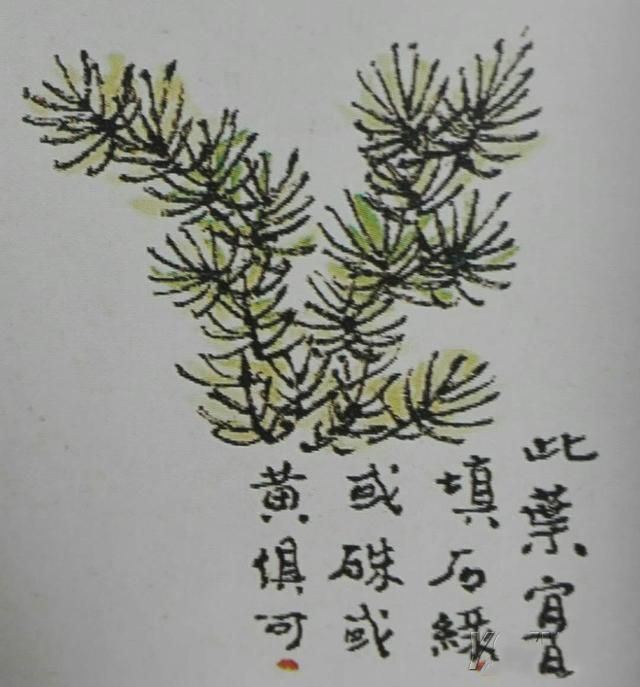 此葉宜
填石綠
或硃或
黄俱可